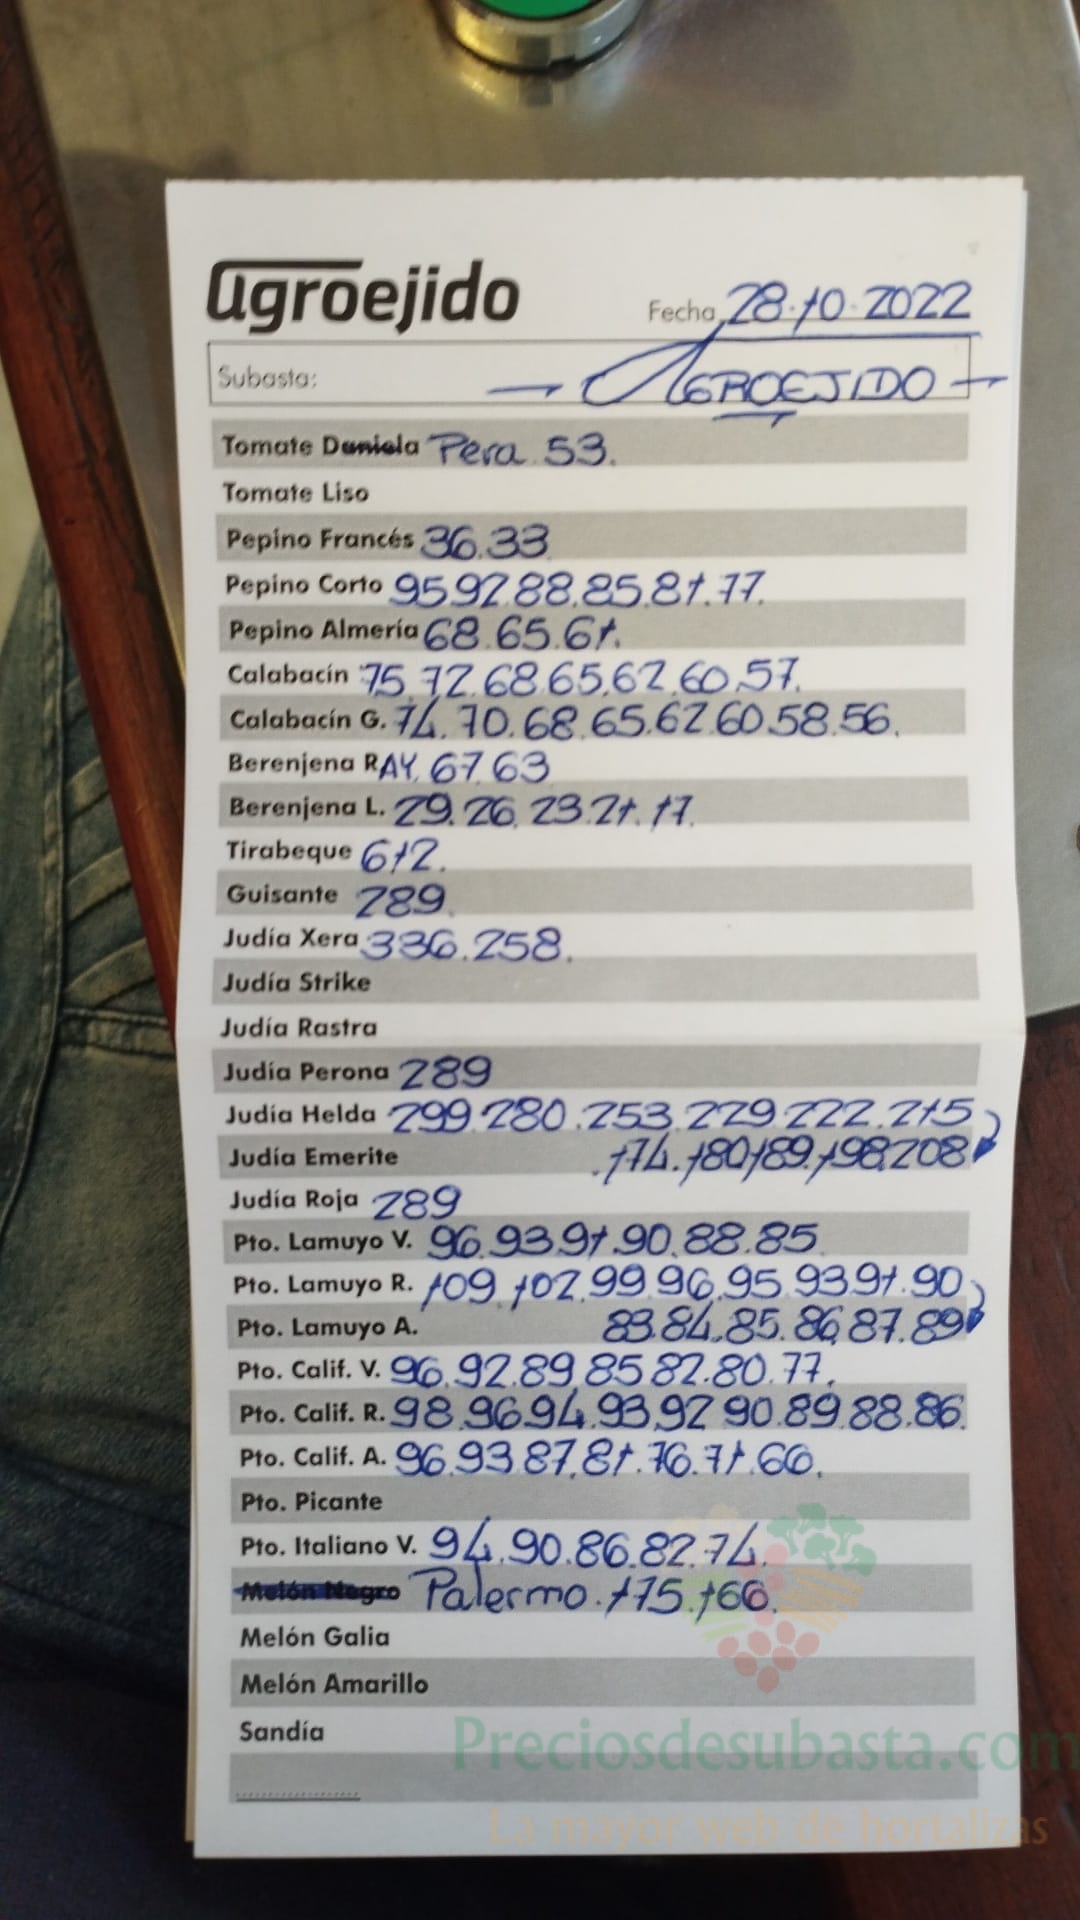 agroejido
Fecha 28.10.2022
Subasta: AGROEJIDO
Tomate Daniela Pera 53.
Tomate Liso
Pepino Francés 36.33
Pepino Corto 95 92.88.85.81.77.
Pepino Almería 68.65.61.
Calabacín 75.72.68.65.62.60.57.
Calabacín G. 74.70.68.65.62.60.58.56.
Berenjena RAY. 67.63
Berenjena L. 29.26.23.21.17.
Tirabeque 612.
Guisante 289
Judía Xera 336.258.
Judía Strike
Judía Rastra
Judía Perona 289
Judía Helda 299.280.253.229.222.215
Judía Emerite .174.180.189.198.208
Judía Roja 289
Pto. Lamuyo V. 96.93.91.90.88.85
Pto. Lamuyo R. 109.102.99.96.95.93.91.90
Pto. Lamuyo A. 83.84.85.86.87.89
Pto. Calif. V. 96.92.89.85.82.80.77.
Pto. Calif. R. 98.96.94.93.92.90.89.88.86.
Pto. Calif. A. 96.93.87.81.76.71.66.
Pto. Picante
Pto. Italiano V. 94.90.86.82.74.
Melón Negro Palermo.175.166.
Melón Galia
Melón Amarillo
Sandía
Preciosdesubasta.com
La mayor web de hortalizas